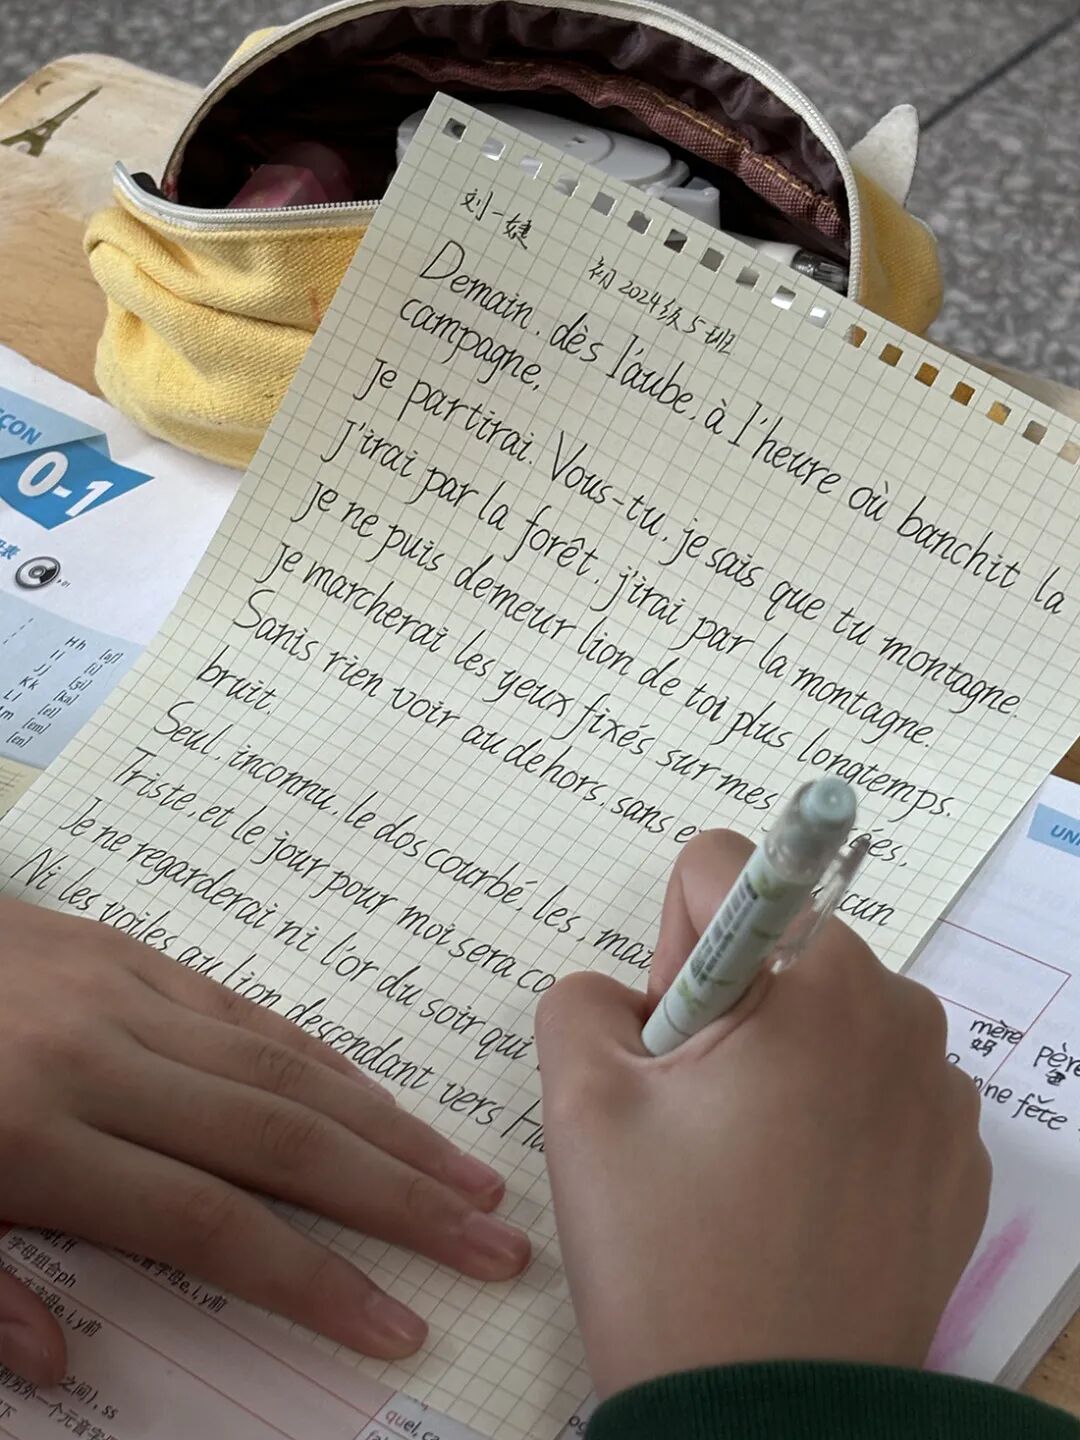 刘一婕
初2024级5班
Demain, dès l'aube, à l'heure où banchit la
campagne,
Je partirai. Vous-tu, je sais que tu montagne.
J'irai par la forêt, j'irai par la montagne.
Je ne puis demeur lion de toi plus longtemps.
Je marcherai les yeux fixés sur mes
Sanis rien voir au dehors, sans
bruit.
Seul, inconnu, le dos courbé, les,
Triste, et le jour pour moi sera
Je ne regarderai ni l'or du soir qui
Ni les voiles au lion descendant vers
ÇON
0-1
Hh
Ii [i]
Jj [ʒi]
Kk [ka]
Ll [el]
Mm [em]
[en]
UNI
mère
妈
père
fête
字母组合ph
字母e, i, y前
字母e, i, y前
之间), ss
另外一个元音字
quel, ca